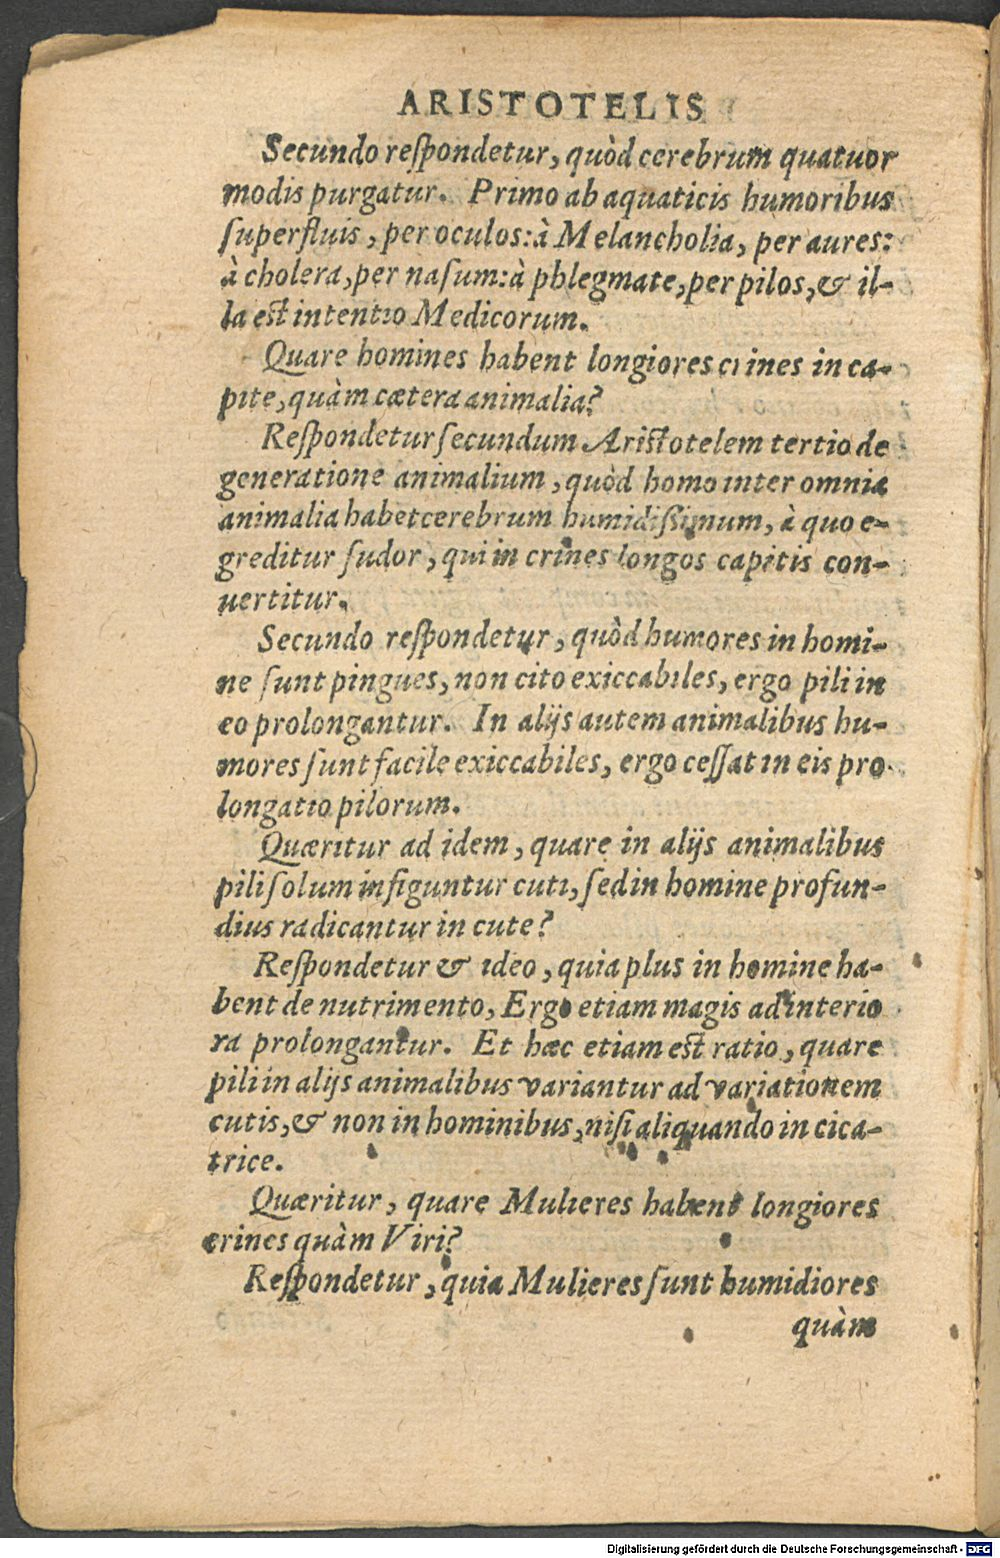 ARISTOTELIS
Secundo reſpondetur, quòd cerebrum quatuor
modis purgatur. Primo ab aquaticis humoribus
ſuperfluis, per oculos: à Melancholia, per aures:
à cholera, per naſum: à phlegmate, per pilos, & il-
la est intentio Medicorum.
Quare homines habent longiores crines in ca-
pite, quàm cætera animalia?
Reſpondetur ſecundum Aristotelem tertio de
generatione animalium, quòd homo inter omnia
animalia habet cerebrum humidiſſimum, à quo e-
greditur ſudor, qui in crines longos capitis con-
uertitur.
Secundo reſpondetur, quòd humores in homi-
ne ſunt pingues, non cito exiccabiles, ergo pili in
eo prolongantur. In alijs autem animalibus hu-
mores ſunt facile exiccabiles, ergo ceſſat in eis pro-
longatio pilorum.
Quæritur ad idem, quare in alijs animalibus
pili ſolum infiguntur cuti, ſed in homine profun-
dius radicantur in cute?
Reſpondetur & ideo, quia plus in homine ha-
bent de nutrimento, Ergo etiam magis ad interio
ra prolongantur. Et hæc etiam est ratio, quare
pili in alijs animalibus variantur ad variationem
cutis, & non in hominibus, niſi aliquando in cica-
trice.
Quæritur, quare Mulieres habent longiores
crines quàm Viri?
Reſpondetur, quia Mulieres ſunt humidiores
quàm
Digitalisierung gefördert durch die Deutsche Forschungsgemeinschaft - DFG